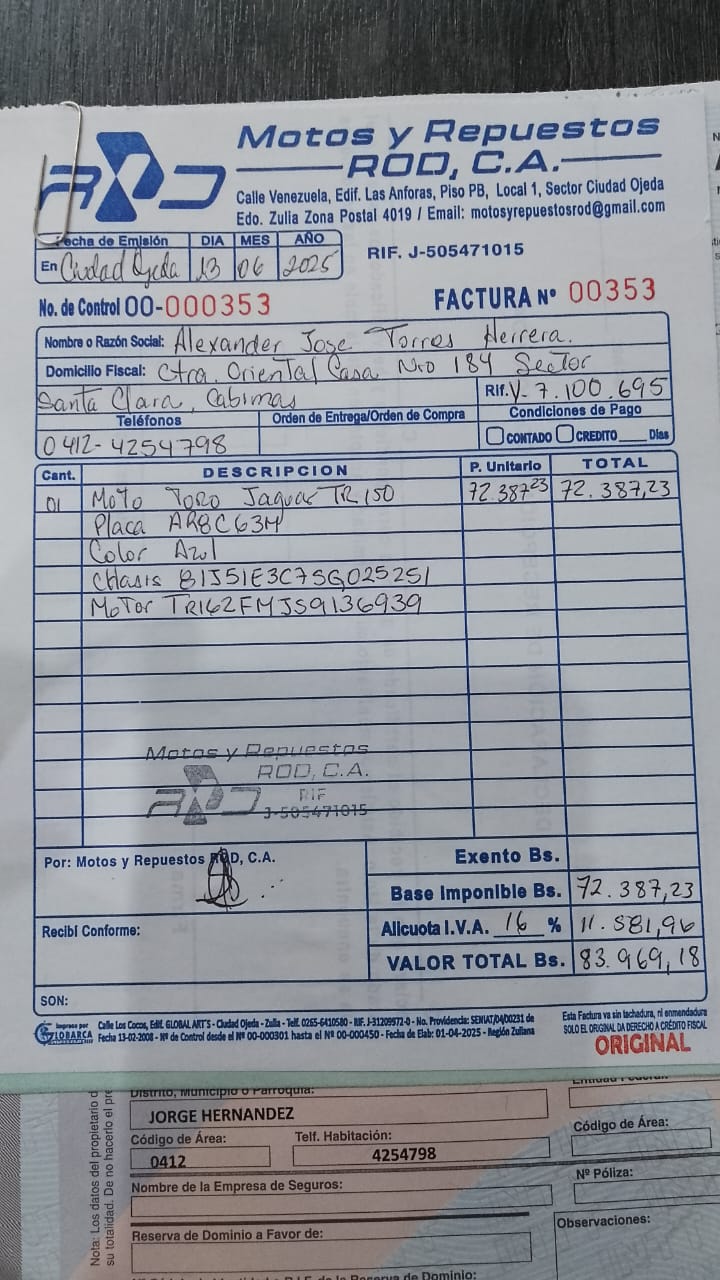 Motos y Repuestos
ROD, C.A.
Calle Venezuela, Edif. Las Anforas, Piso PB, Local 1, Sector Ciudad Ojeda
Edo. Zulia Zona Postal 4019 / Email: motosyrepuestosrod@gmail.com
Fecha de Emisión DIA MES AÑO
En Ciudad Ojeda 13 06 2025
RIF. J-505471015
No. de Control 00-000353
FACTURA Nº 00353
Nombre o Razón Social: Alexander Jose Torres Herrera.
Domicilio Fiscal: Ctra. Oriental Casa Nro 184 Sector
Santa Clara, Cabimas Rif. V-7.100.695
Teléfonos Orden de Entrega/Orden de Compra Condiciones de Pago
0412-4254798 CONTADO CREDITO____Días
Cant. DESCRIPCION P. Unitario TOTAL
01 Moto Toro Jaguar TR150 72.387,23 72.387,23
Placa AR8C63M
Color Azul
Chasis 81J51E3C7SG025251
Motor TR162FMJS9136939
Motos y Repuestos
ROD, C.A.
RIF
J-505471015
Por: Motos y Repuestos ROD, C.A.
Exento Bs.
Base Imponible Bs. 72.387,23
Recibí Conforme:
Alicuota I.V.A. 16 % 11.581,96
VALOR TOTAL Bs. 83.969,18
SON:
Impreso por GLOBARCA
Calle Los Cocos, Edif. GLOBAL ART'S - Ciudad Ojeda - Zulia - Telf. 0265-6410580 - RIF. J-31209972-0 - No. Providencia: SENIAT/04/00231 de
Fecha 13-02-2008 - Nº de Control desde el Nº 00-000301 hasta el Nº 00-000450 - Fecha de Elab: 01-04-2025 - Región Zuliana
Esta Factura va sin tachadura, ni enmendadura
SOLO EL ORIGINAL DA DERECHO A CRÉDITO FISCAL
ORIGINAL
Distrito, Municipio o Parroquia:
JORGE HERNANDEZ
Código de Área: Telf. Habitación: Código de Área:
0412 4254798
Nombre de la Empresa de Seguros: Nº Póliza:
Reserva de Dominio a Favor de: Observaciones:
Nota: Los datos del propietario
su totalidad. De no hacerlo el